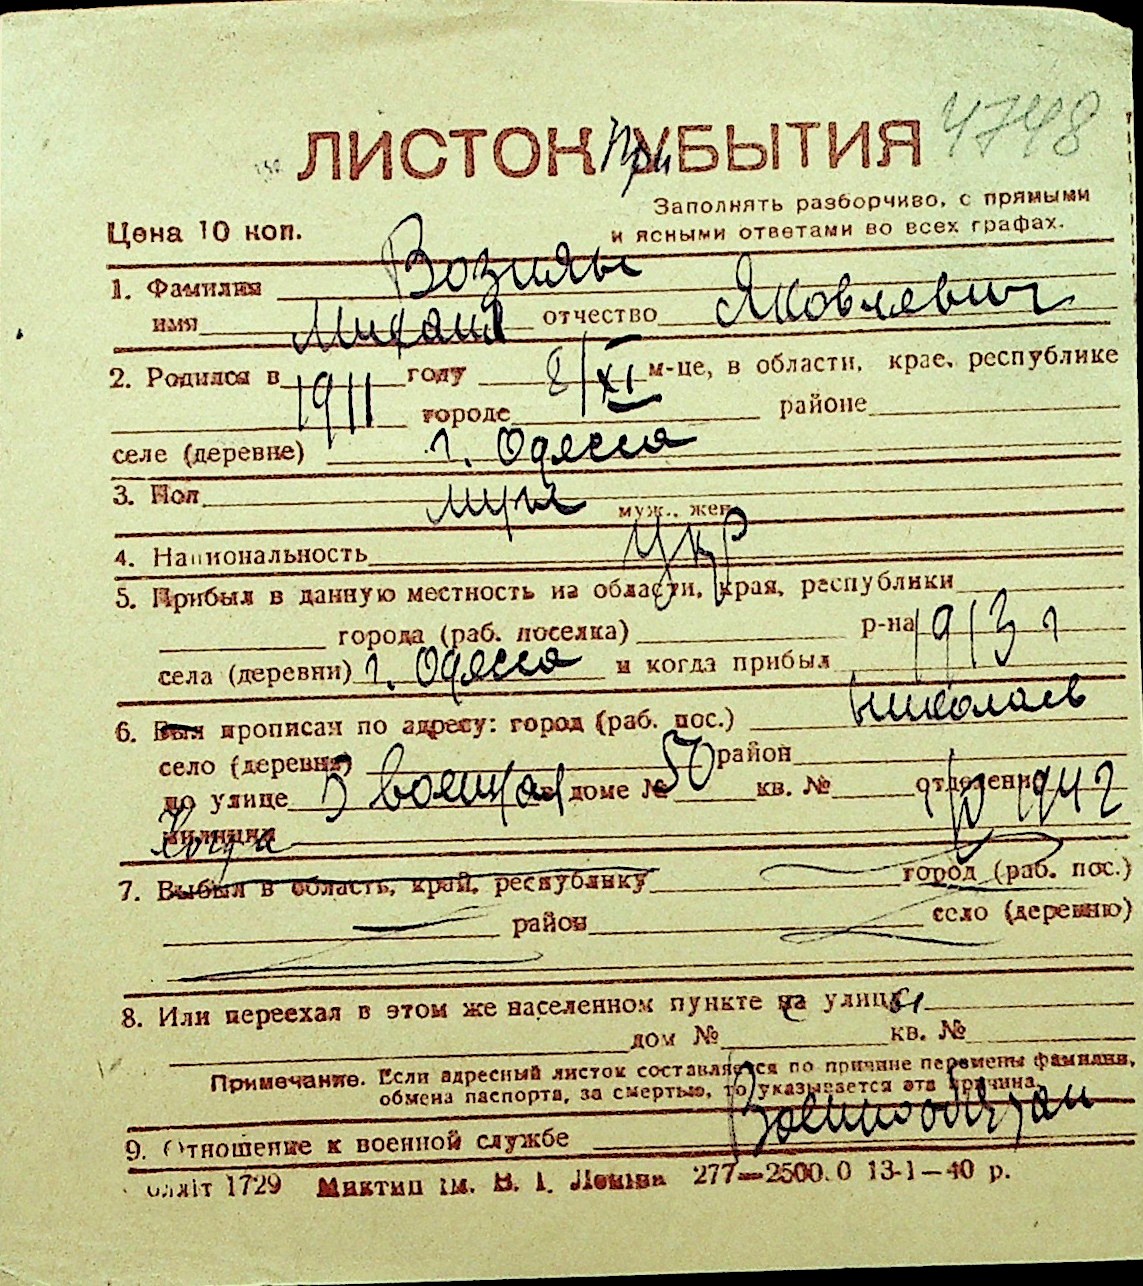 4748
ЛИСТОК при УБЫТИЯ
Заполнять разборчиво, с прямыми
Цена 10 коп. и ясными ответами во всех графах.
1. Фамилия Возиян
имя Михаил отчество Яковлевич
2. Родился в 1911 году 8/XI м-це, в области, крае, республике
городе районе
селе (деревне) г. Одесса
3. Пол муж муж., жен.
4. Национальность Укр
5. Прибыл в данную местность из области, края, республики
города (раб. поселка) р-на 1913 г
села (деревни) г. Одесса и когда прибыл
6. Был прописан по адресу: город (раб. пос.) Николаев
село (деревня) район
по улице 5 военная доме № 50 кв. № отделение 1942
милиции Когда
7. Выбыл в область, край, республику город (раб. пос.)
район село (деревню)
8. Или переехал в этом же населенном пункте с улицы
дом № кв. №
Примечание. Если адресный листок составляется по причине перемены фамилии,
обмена паспорта, за смертью, то указывается эта причина.
9. Отношение к военной службе Военнообязан
1729 Миктип ім. В. І. Леніна 277—2500.0 13-1—40 р.